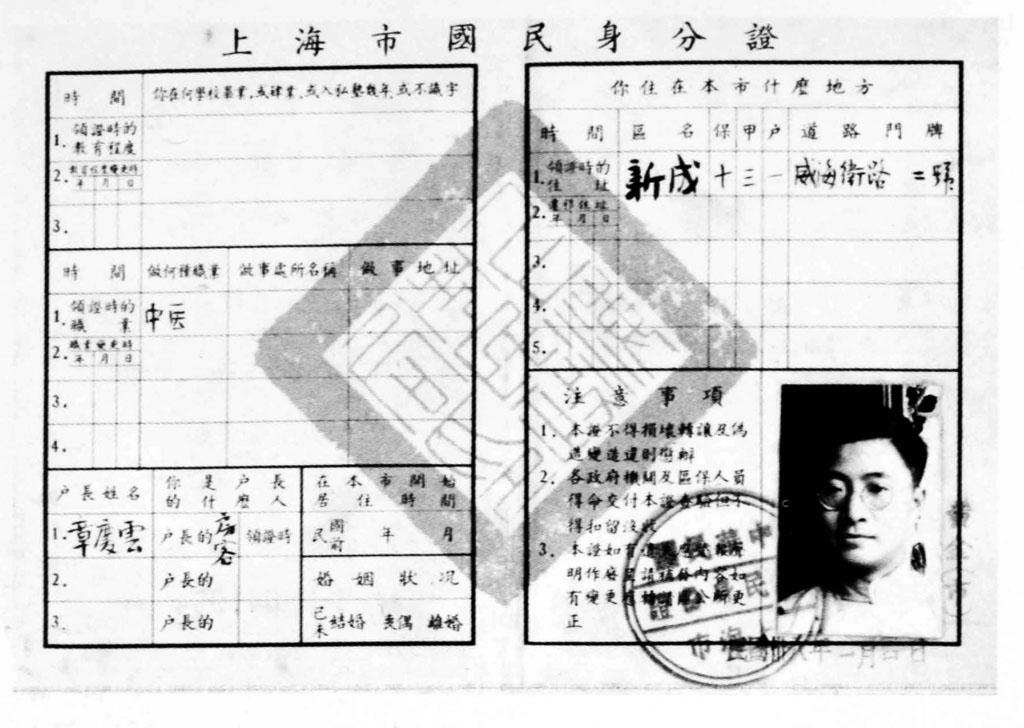 上海市國民身分證
時間 你在何學校畢業,或肄業,或入私塾幾年,或不識字
1. 領證時的教育程度
2. 教育程度變更時
年 月 日
3.
時間 做何種職業 做事處所名稱 做事地址
1. 領證時的職業 中医
2. 職業變更時
年 月 日
3.
4.
户長姓名 你是户長的什麽人 在本市開始居住時間
1. 章慶雲 户長的房客 領證時 民國前 年 月
2. 户長的 婚姻狀况
3. 户長的 已未結婚 喪偶 離婚
你住在本市什麽地方
時間 區名 保 甲 户 道路門牌
1. 領證時的住址 新成 十 三 一 威海衛路 二號
2. 遷移住址
年 月 日
3.
4.
5.
注意事項
1. 本證不得損壞轉讓及偽
造變造違則懲辦
2. 各政府機關及區保人員
得命交付本證查驗但不
得扣留沒收
3. 本證如有遺
明作廢
有變更應
正